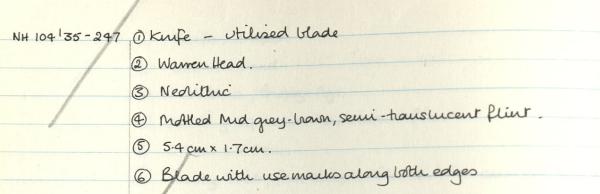 NH 104'35-247 ① Knife - utilised blade
② Warren Head.
③ Neolithic
④ Mottled mid grey-brown, semi-translucent flint.
⑤ 5.4cm x 1.7cm.
⑥ Blade with use marks along both edges